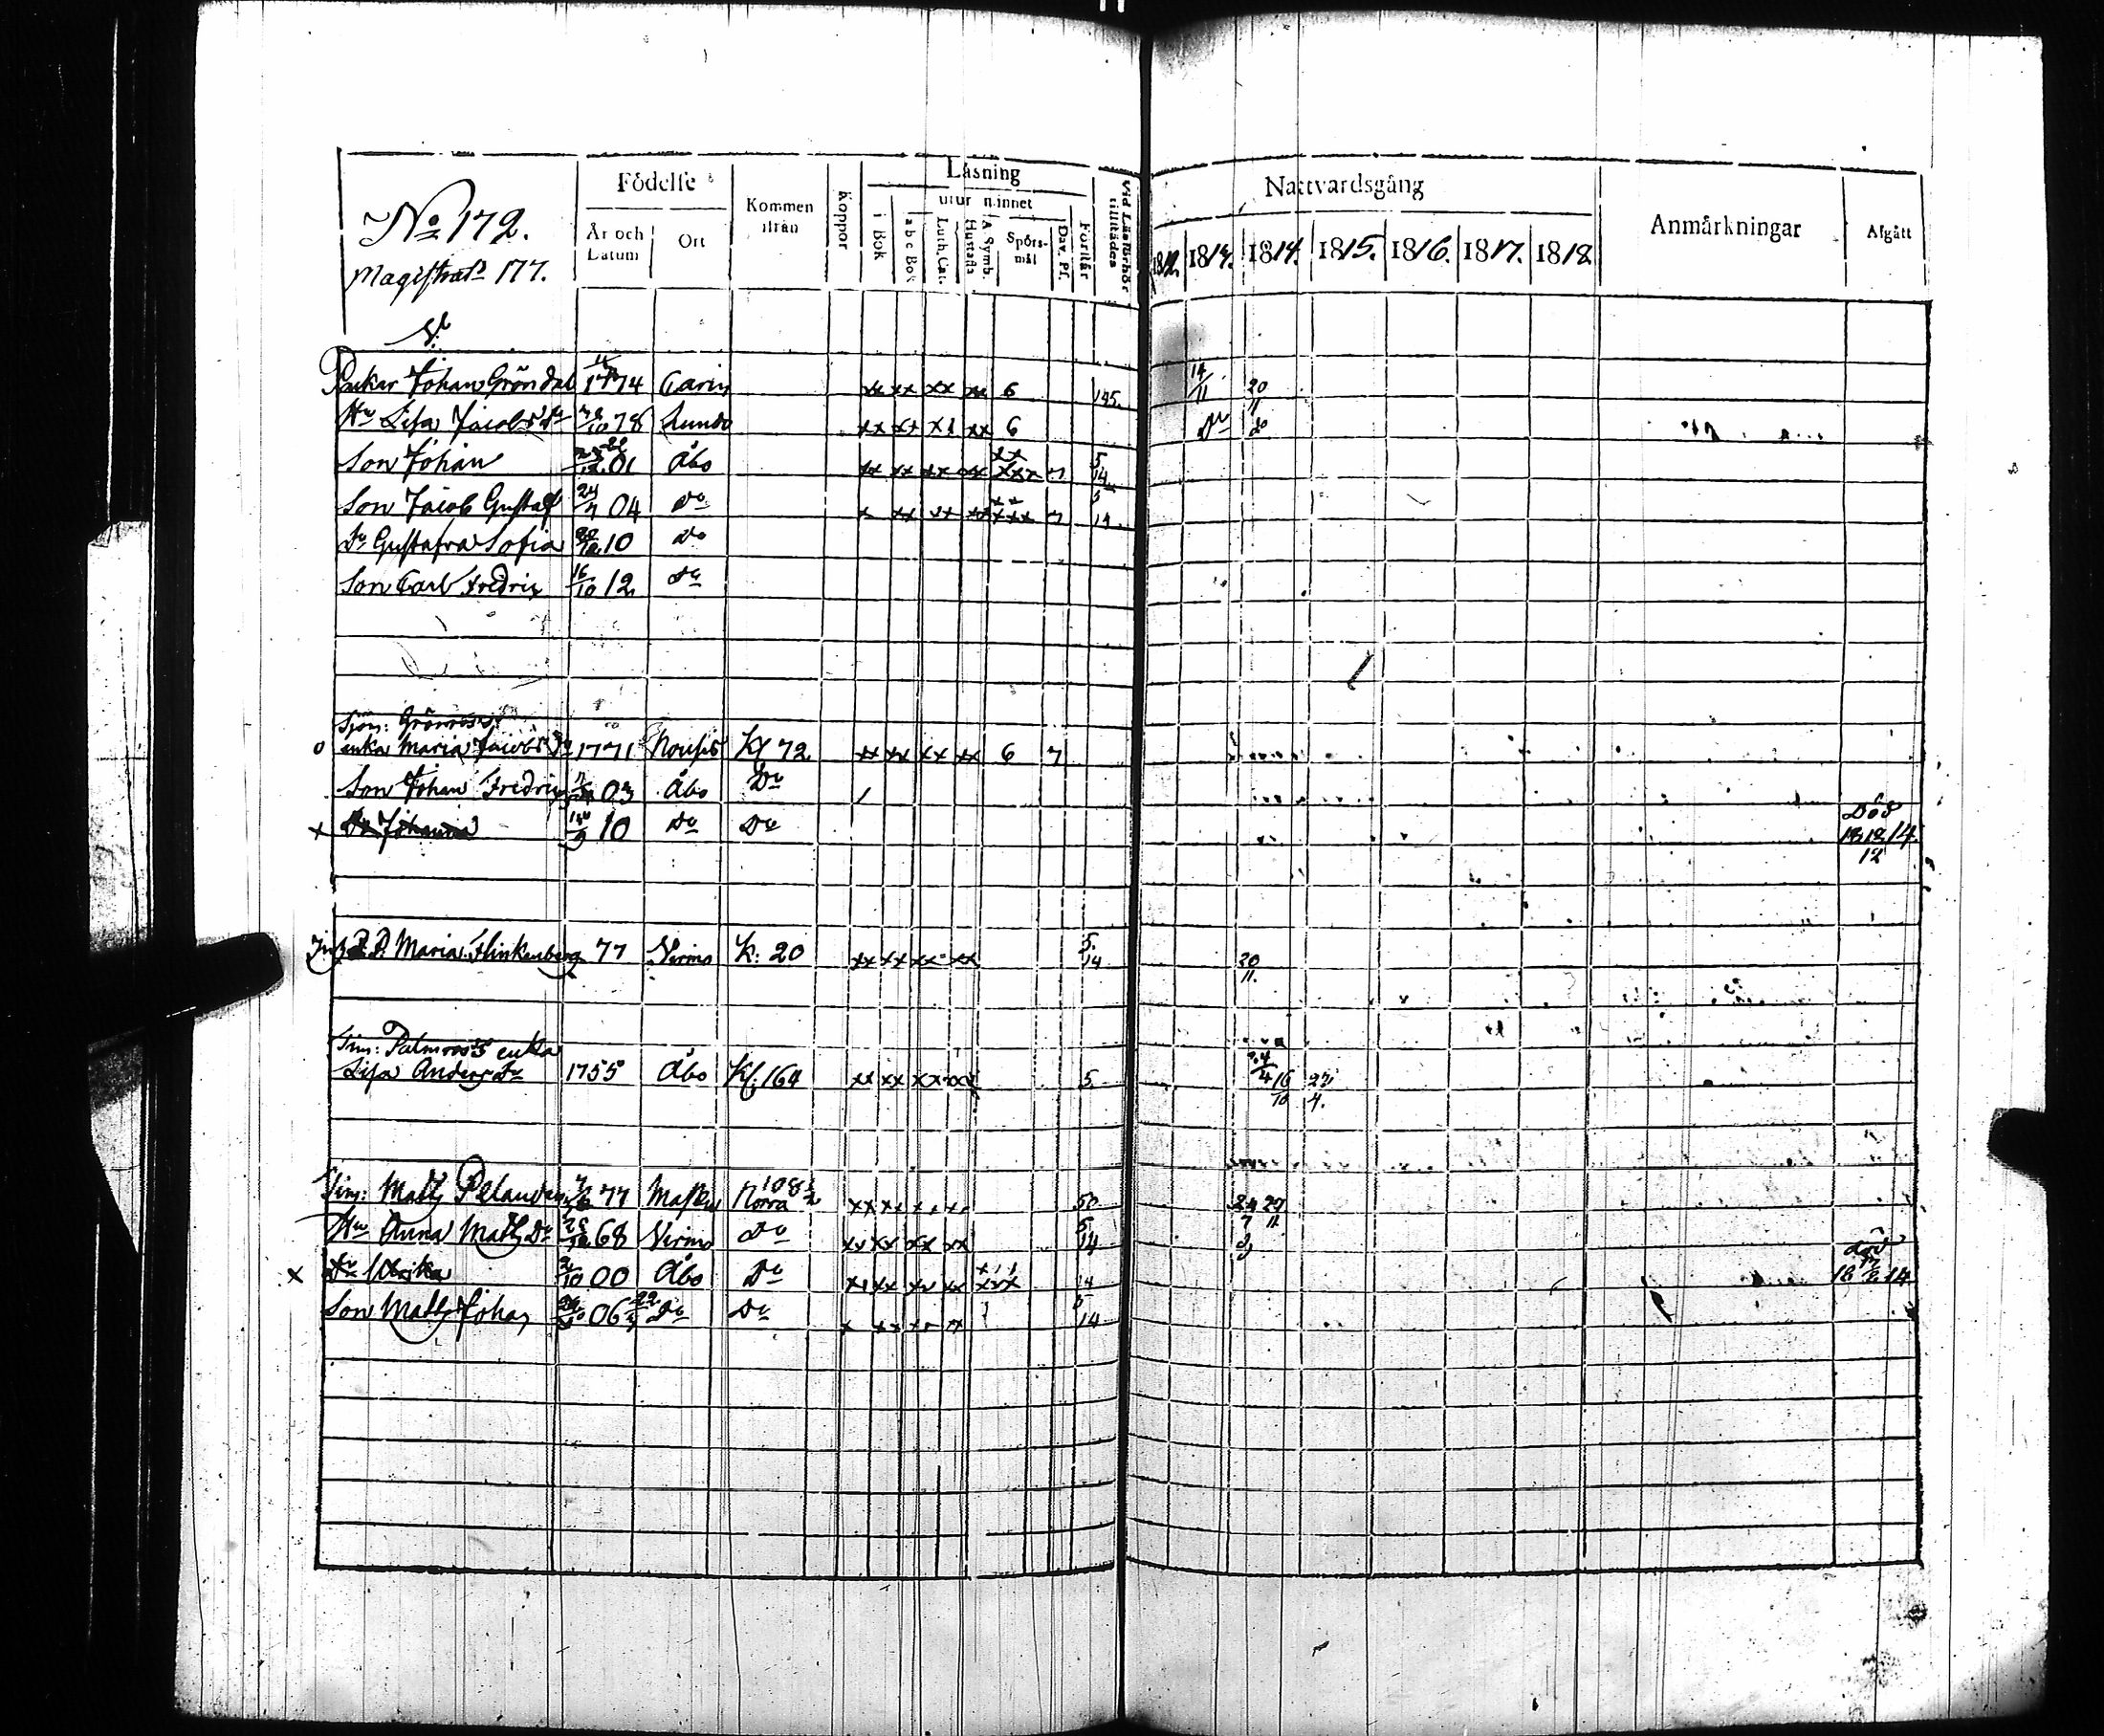 No 172.
Magistrats 177.
Födelse
År och Datum
Ort
Kommen ifrån
Koppor
Läsning
i Bok
utur minnet
a b c Bok
Luth. Cat.
A. Symb. Hustafla
Spörs-mål
Dav. Ps.
Förstår
Vid Läsförhör tillstädes
Nattvardsgång
1814. 1815. 1816. 1817. 1818
Anmärkningar
Afgått
Johan Gröndal 1774 xx xx xx xx 6 14/11 20/11
Hu Lisa Jacobs Dr 78 Lundo xx xx xx xx 6 Do
Son Johan 01 Åbo xx xx xx xx xx xxx 7 5 14
Son Jacob Gustaf 04 Do x xx xx xx xx xxx 7 5 14
Dr Gustafva Sofia 10 Do
Son Carl Fredric 16/10 12 Do
o enka Maria Jacobs Dr 1771 Nousis Kl 72 xx xx xx xx 6 7
Son Johan Fredric 03 Åbo Do
x Dr Johanna 10 Do Do Död 14
Maria Flinkenberg 77 Virmo K: 20 xx xx xx xx 5. 14 20/11.
Tim: Palmroos enka
Lisa Anders Dr 1755 Åbo Kl. 164 xx xx xx xx 5 16/10 27/4.
Tim: Matts Pelander 77 Masku Norra 108 1/2 xx xx xx xx 50
Hu Anna Matts Dr 68 Virmo Do xx xx xx xx 5 14
x Dr Ulrika 2/10 00 Åbo Do xx xx xx xx xxx 14 död 14
Son Matts Johan 06 Do Do x xx xx xx 5 14